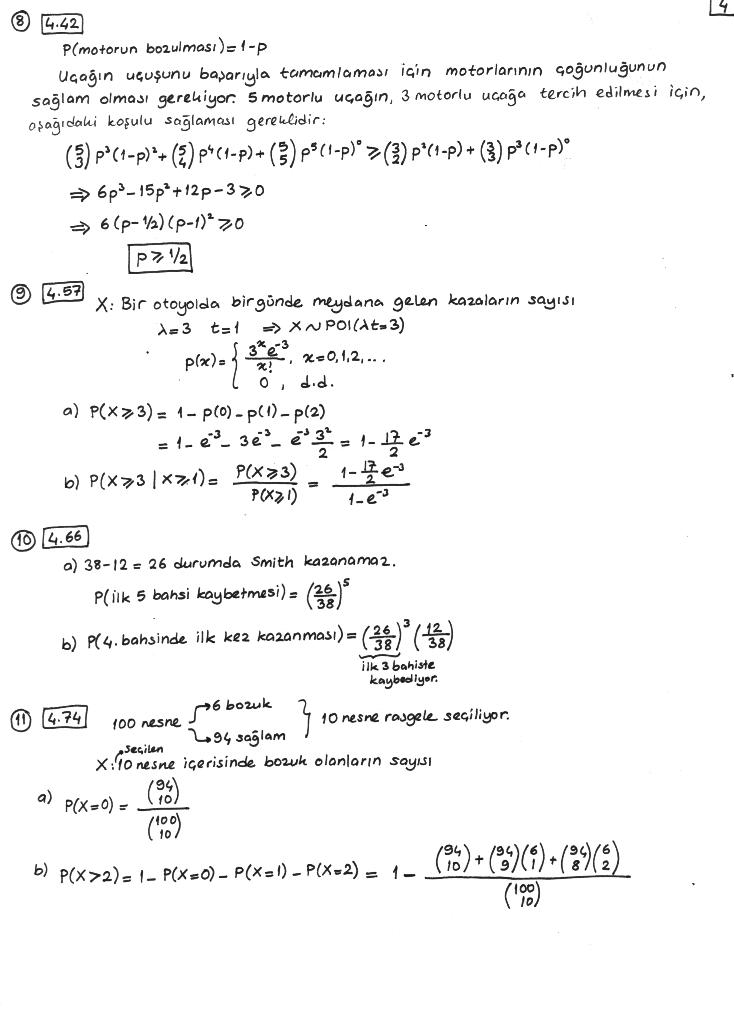 4
⑧ 4.42
P(motorun bozulması)=1-p
Uçağın uçuşunu başarıyla tamamlaması için motorlarının çoğunluğunun
sağlam olması gerekiyor. 5 motorlu uçağın, 3 motorlu uçağa tercih edilmesi için,
aşağıdaki koşulu sağlaması gereklidir:
(5 3) p³(1-p)² + (5 4) p⁴(1-p) + (5 5) p⁵(1-p)⁰ ⩾ (3 2) p²(1-p) + (3 3) p³(1-p)⁰
⇒ 6p³-15p²+12p-3⩾0
⇒ 6(p-1/2)(p-1)²⩾0
p⩾1/2
⑨ 4.57 X: Bir otoyolda bir günde meydana gelen kazaların sayısı
λ=3 t=1 ⇒ X~POI(λt=3)
p(x)= { 3ˣe⁻³/x! , x=0,1,2,...
0 , d.d.
a) P(X⩾3) = 1-p(0)-p(1)-p(2)
= 1-e⁻³-3e⁻³-e⁻³ 3²/2 = 1- 17/2 e⁻³
b) P(X⩾3 | X⩾1) = P(X⩾3)/P(X⩾1) = (1- 17/2 e⁻³)/(1-e⁻³)
⑩ 4.66
a) 38-12 = 26 durumda Smith kazanamaz.
P(ilk 5 bahsi kaybetmesi) = (26/38)⁵
b) P(4. bahsinde ilk kez kazanması) = (26/38)³ (12/38)
ilk 3 bahiste
kaybediyor.
⑪ 4.74 100 nesne → 6 bozuk
→ 94 sağlam } 10 nesne rasgele seçiliyor.
seçilen
X: 10 nesne içerisinde bozuk olanların sayısı
a) P(X=0) = (94 10)/(100 10)
b) P(X>2) = 1-P(X=0)-P(X=1)-P(X=2) = 1- ((94 10)+(94 9)(6 1)+(94 8)(6 2))/(100 10)